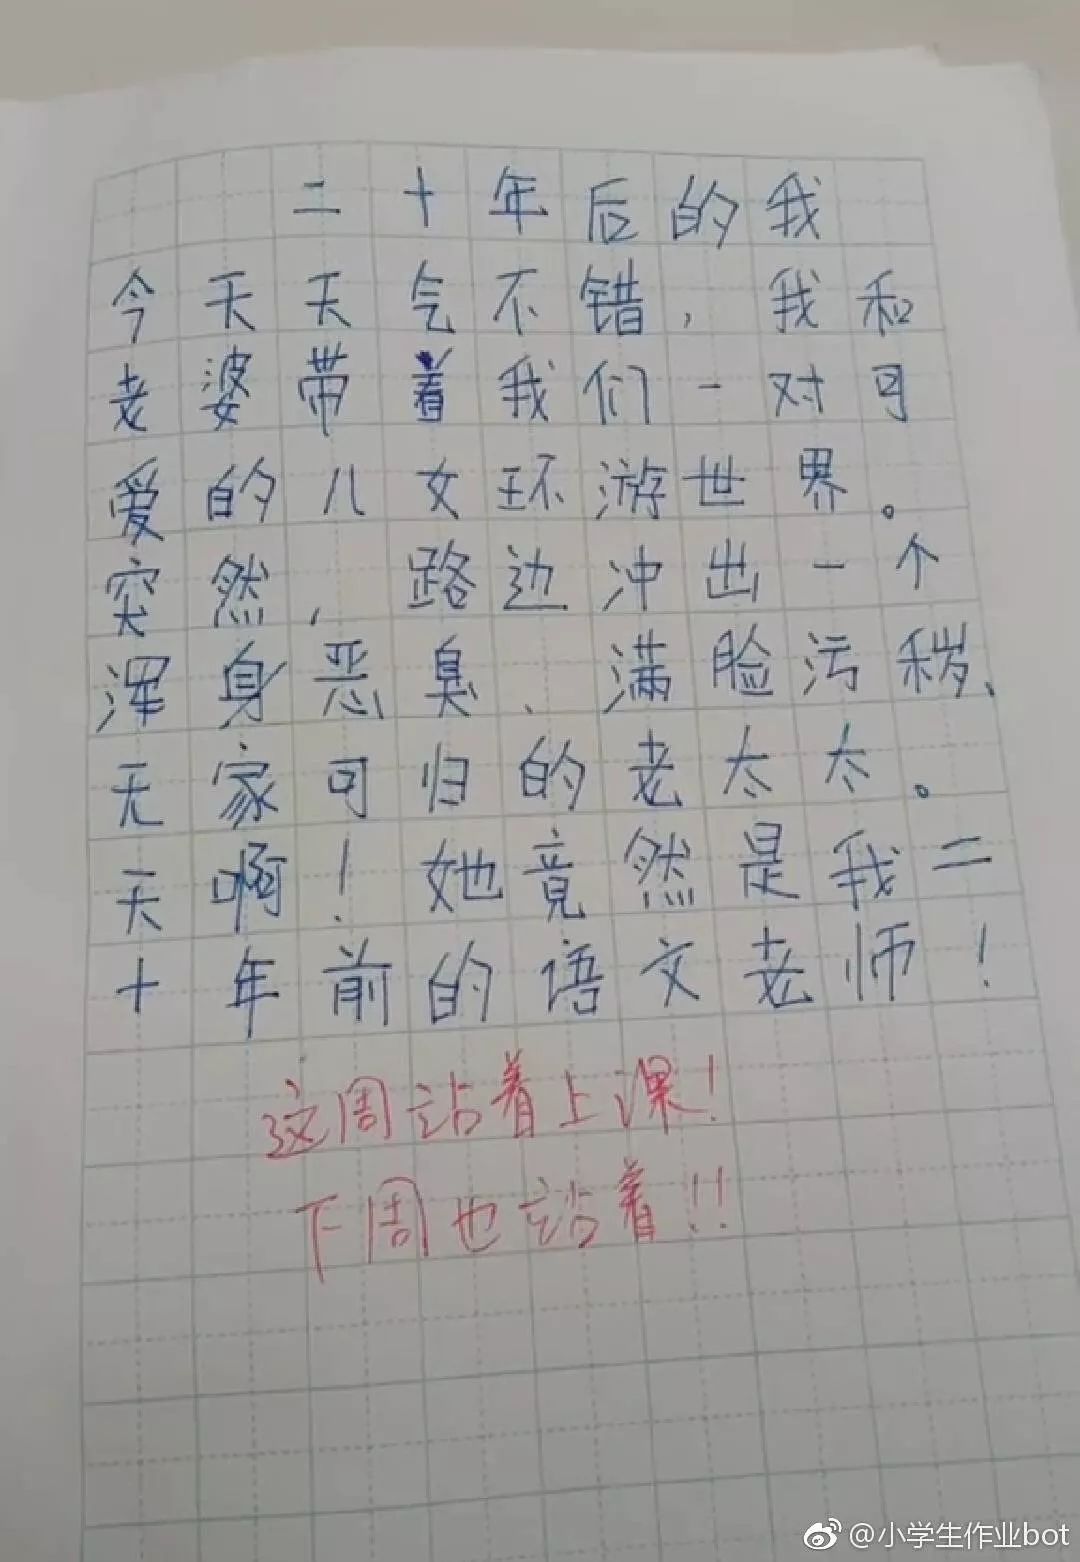 二十年后的我
今天天气不错，我和
老婆带着我们一对可
爱的儿女环游世界。
突然，路边冲出一个
浑身恶臭、满脸污秽、
无家可归的老太太。
天啊！她竟然是我二
十年前的语文老师！
这周站着上课！
下周也站着！！
@小学生作业bot